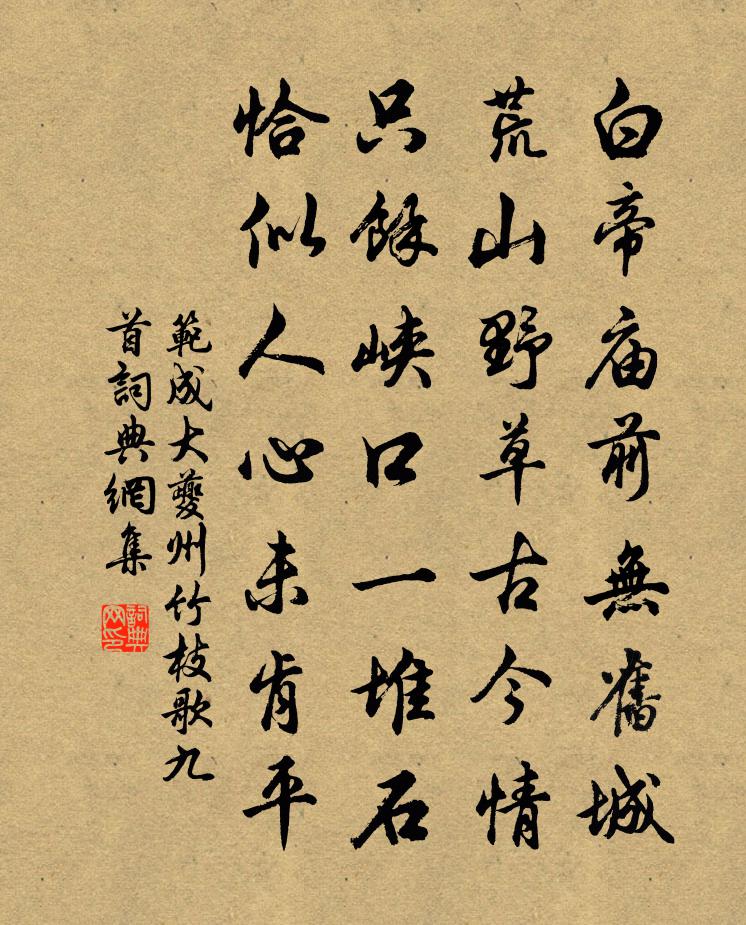 白帝庙前無舊城
荒山野草古今情
只餘峡口一堆石
恰似人心未肯平
範成大夔州竹枝歌九
首詞典網集
詞典網印